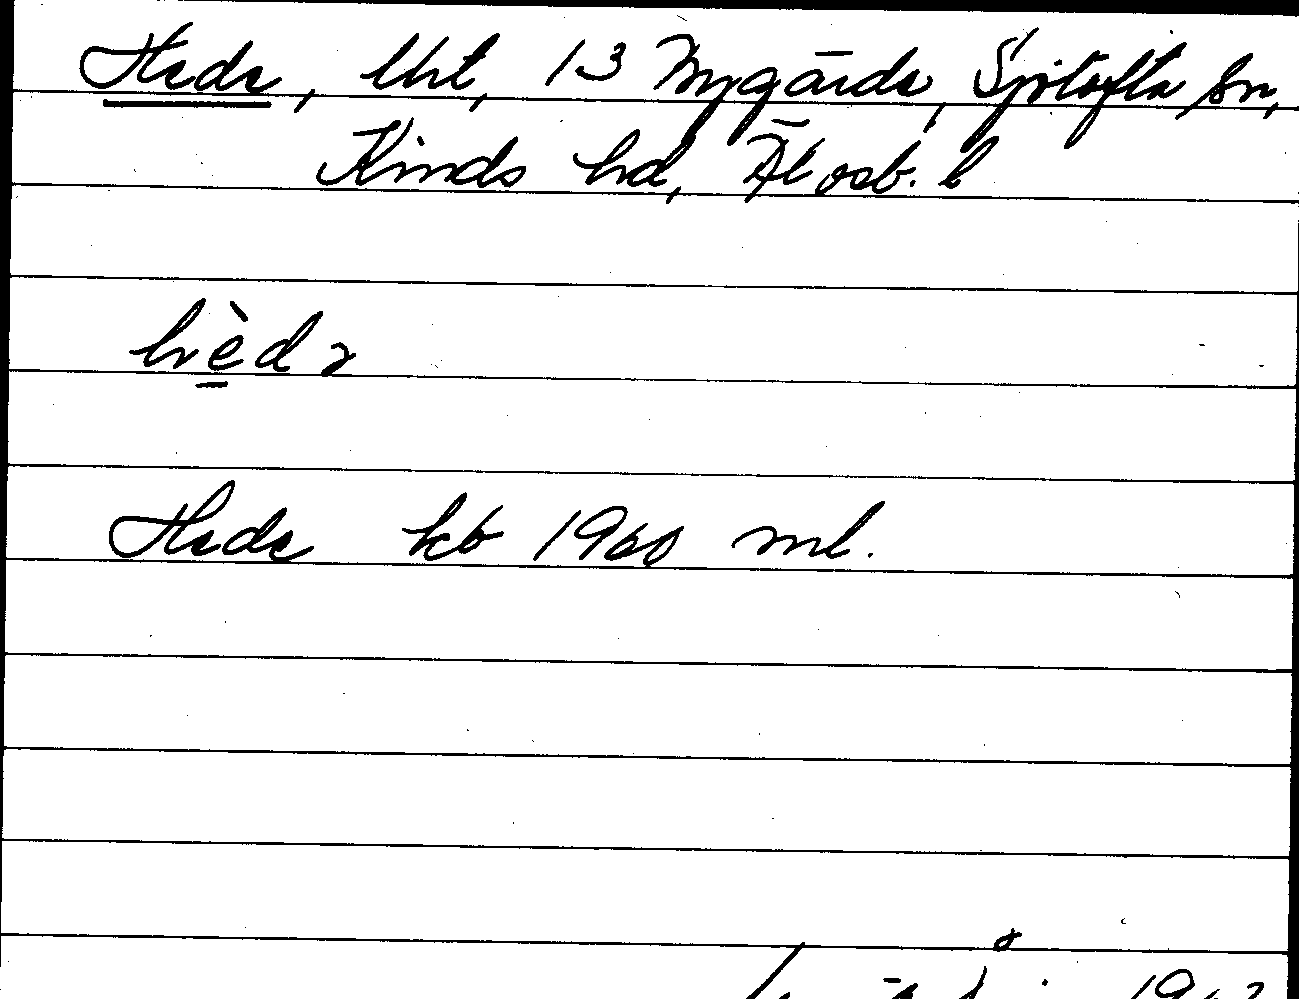 Hede, lht, 13 Nygärde, Sjötofta sn,
Kinds hd, Älvsb. l
hèdə
Hede kb 1960 ml.